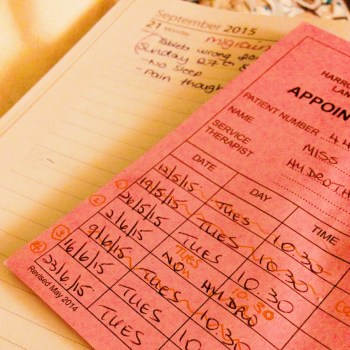 September 2015
21 Monday migrain
Tablets wrong
Sunday 27th &
- No Sleep
- Pain though
HARRO
LAN
APPOIN
PATIENT NUMBER 44
NAME MISS
SERVICE HYDROTH
THERAPIST
DATE DAY TIME
12/5/15 TUES 10.30
19/5/15 TUES 10.30
26/5/15 TUES 10.30
2/6/15 NO HYDRO
TUES 10.30
9/6/15 TUES 10.30
16/6/15 TUES 10.30
23/6/15 TUES
Revised May 2014